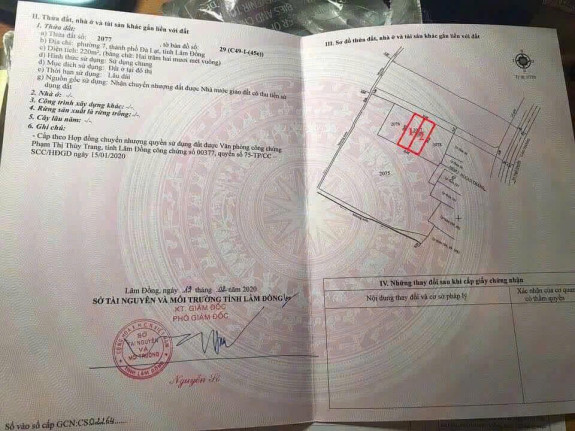 II. Thửa đất, nhà ở và tài sản khác gắn liền với đất
1. Thửa đất:
a) Thửa đất số: 2077 , tờ bản đồ số: 29 (C49-I-(45c))
b) Địa chỉ: phường 7, thành phố Đà Lạt, tỉnh Lâm Đồng
c) Diện tích: 220m², (bằng chữ: Hai trăm hai mươi mét vuông)
d) Hình thức sử dụng: Sử dụng chung
đ) Mục đích sử dụng: Đất ở tại đô thị
e) Thời hạn sử dụng: Lâu dài
g) Nguồn gốc sử dụng: Nhận chuyển nhượng đất được Nhà nước giao đất có thu tiền sử
dụng đất
2. Nhà ở: -/-
3. Công trình xây dựng khác: -/-
4. Rừng sản xuất là rừng trồng: -/-
5. Cây lâu năm: -/-
6. Ghi chú:
- Cấp theo Hợp đồng chuyển nhượng quyền sử dụng đất được Văn phòng công chứng
Phạm Thị Thùy Trang, tỉnh Lâm Đồng công chứng số 00377, quyển số 75-TP/CC -
SCC/HĐGD ngày 15/01/2020
Lâm Đồng, ngày tháng năm 2020
SỞ TÀI NGUYÊN VÀ MÔI TRƯỜNG TỈNH LÂM ĐỒNG
KT. GIÁM ĐỐC
PHÓ GIÁM ĐỐC
SỞ
TÀI NGUYÊN
VÀ
MÔI TRƯỜNG
TỈNH LÂM ĐỒNG
Số vào sổ cấp GCN:CS
III. Sơ đồ thửa đất, nhà ở và tài sản khác gắn liền với đất
2075
IV. Những thay đổi sau khi cấp giấy chứng nhận
Nội dung thay đổi và cơ sở pháp lý
Xác nhận của cơ quan
có thẩm quyền